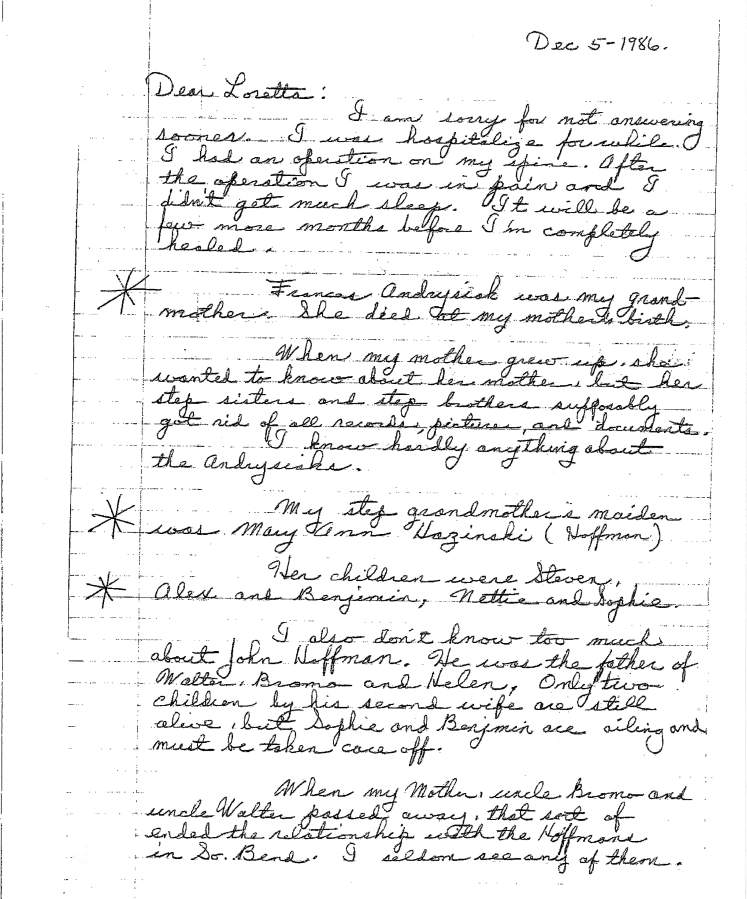 Dec 5-1986.
Dear Loretta:
I am sorry for not answering
sooner. I was hospitalize forwhile.
I had an operation on my spine. After
the operation I was in pain and I
didn't get much sleep. It will be a
few more months before I'm completely
healed.
Frances Andrysiak was my grand-
mother. She died at my mother's birth.
When my mother grew up, she
wanted to know about her mother, but her
step sisters and step brothers supposably
got rid of all records, pictures, and documents.
I know hardly anything about
the Andrysiaks.
My step grandmother's maiden
was Mary Ann Hazinski (Hoffman)
Her children were Steven,
Alex and Benjimin, Nettie and Sophie.
I also don't know too much
about John Hoffman. He was the father of
Walter, Bromo and Helen, Only two
children by his second wife are still
alive, but Sophie and Benjmin are ailing and
must be taken care off.
When my Mother, uncle Bromo and
uncle Walter passed away, that sort of
ended the relationship with the Hoffmans
in So. Bend. I seldom see any of them.